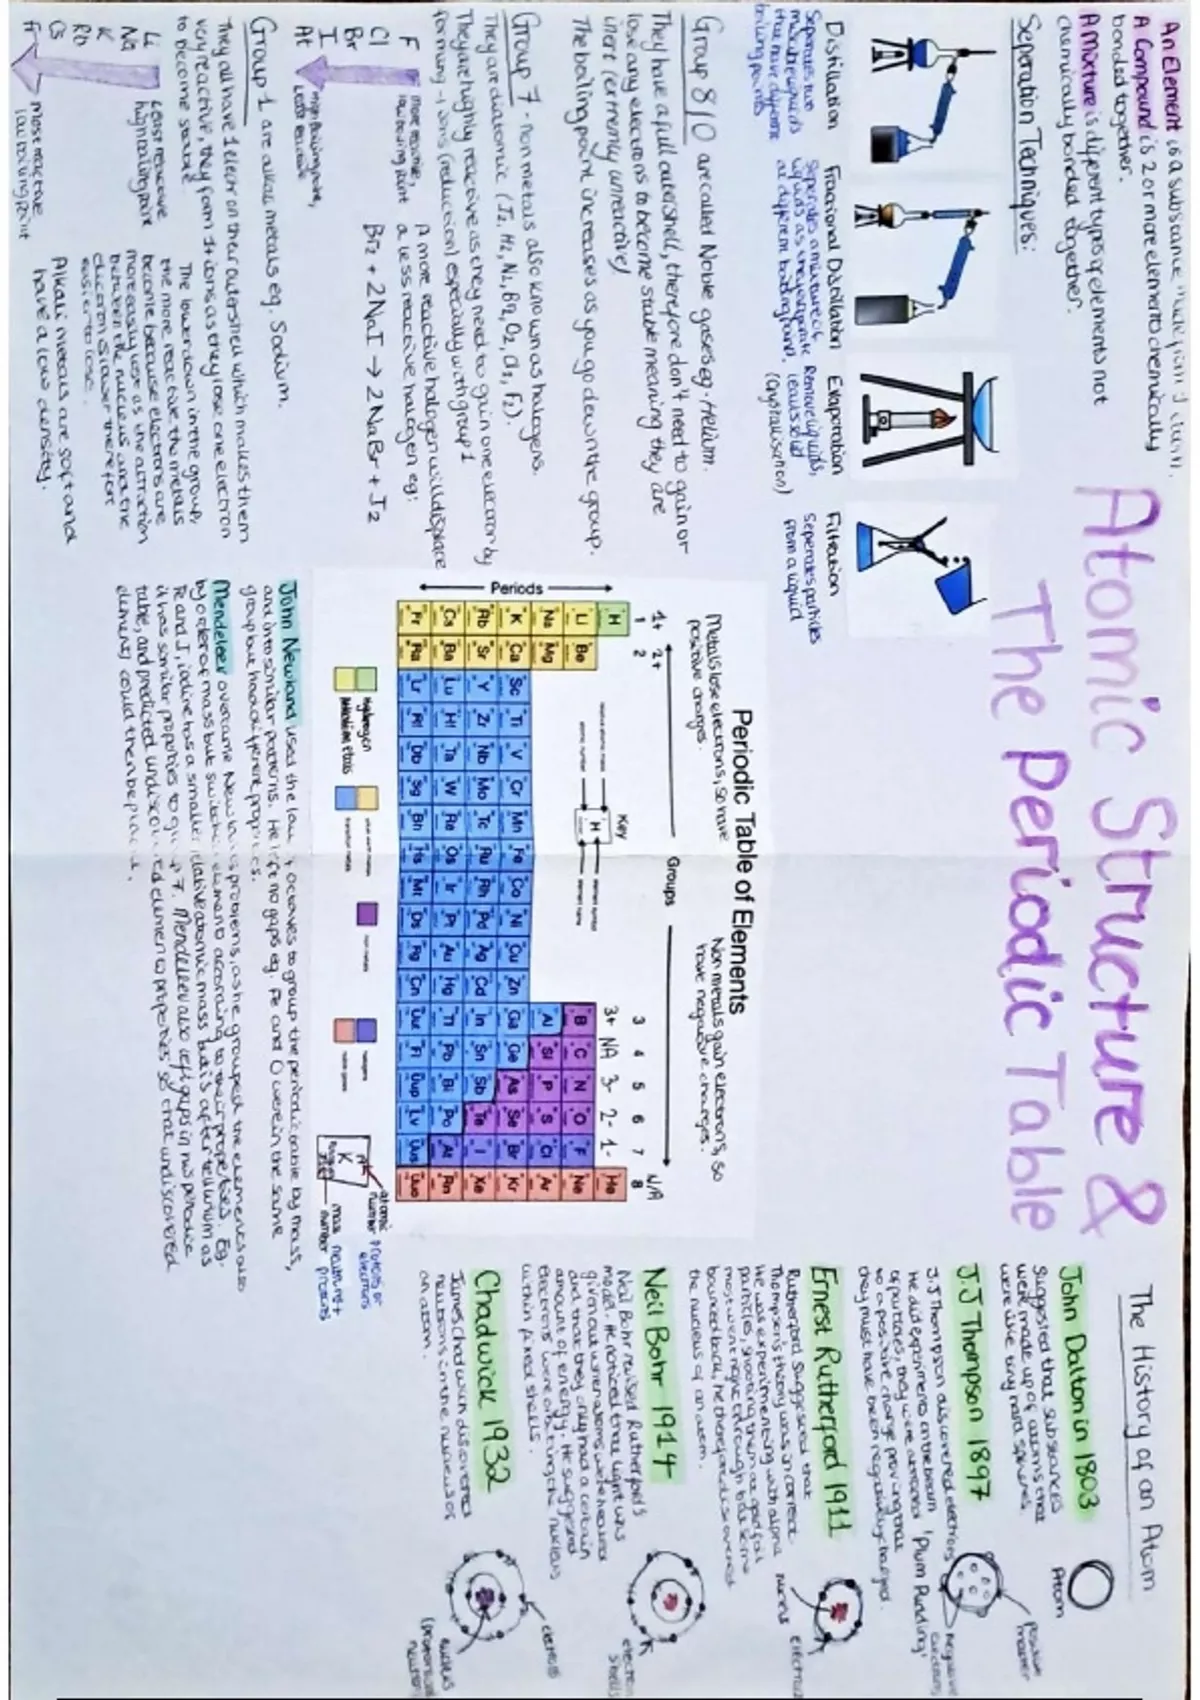 Atomic Structure &
The Periodic Table
An Element is a substance made from 1
A Compound is 2 or more elements chemically
bonded together.
A mixture is different types of elements not
chemically bonded together.
Seperation Techniques:
Distillation
Seperates two
boiling points
Fractional Distillation
Seperates a mixture of
liquids as they evaporate
at different boiling points.
Evaporation
Removes liquids,
leaves solid
(Crystallisation)
Filtration
Seperates particles
from a liquid
Group 8/0 are called Noble gases eg. Helium.
They have a full outer shell, therefore don't need to gain or
lose any electrons to become stable meaning they are
inert (extremely unreactive)
The boiling point increases as you go down the group.
Group 7 - non metals also known as halogens.
They are diatomic (I2, H2, N2, Br2, O2, Cl2, F2).
They are highly reactive as they need to gain one electron by
forming -1 ions (reduction) especially with group 1
F
Cl
Br
I
At
more reactive,
low boiling point
high boiling point,
Less reactive
A more reactive halogen will displace
a less reactive halogen eg:
Br2 + 2NaI → 2NaBr + I2
Group 1 are alkali metals eg. Sodium.
They all have 1 electron on their outer shell which makes them
very reactive, they form 1+ ions as they lose one electron
to become stable
Li
Na
K
Rb
Cs
Fr
Least reactive
high boiling point
most reactive
low boiling point
The lower down in the group,
the more reactive the metals
become because electrons are
more easily lost as the attraction
between the nucleus and the
electron is lower therefore
easier to lose.
Alkali metals are soft and
have a low density.
Periodic Table of Elements
Metals lose electrons, so have
positive charges.
Non metals gain electrons, so
have negative charges.
Groups
Periods
Key
H
1+ 2+ 3+ NA 3- 2- 1- N/A
1 2 3 4 5 6 7 8
H He
Li Be B C N O F Ne
Na Mg Al Si P S Cl Ar
K Ca Sc Ti V Cr Mn Fe Co Ni Cu Zn Ga Ge As Se Br Kr
Rb Sr Y Zr Nb Mo Tc Ru Rh Pd Ag Cd In Sn Sb Te I Xe
Cs Ba Lu Hf Ta W Re Os Ir Pt Au Hg Tl Pb Bi Po At Rn
Fr Ra Lr Rf Db Sg Bh Hs Mt Ds Rg Cn Uut Fl Uup Lv Uus Uuo
Hydrogen
K
atomic number protons or electrons
mass number neutrons + protons
John Newland used the law of octaves to group the periodic table by mass,
and into similar patterns. He left no gaps eg. Fe and O were in the same
group but had different properties.
Mendeleev overcame Newlands problems, as he grouped the elements also
by order of mass but switched elements according to their properties. Eg.
Te and I, iodine has a smaller relative atomic mass but is after tellurium as
it has similar properties to group 7. Mendeleev also left gaps in his periodic
table, and predicted undiscovered elements properties so that undiscovered
elements could then be placed.
The History of an Atom
John Dalton in 1803
Suggested that substances
were made up of atoms that
were like tiny hard spheres.
Atom
J.J Thompson 1897
J.J Thompson discovered electrons
He did experiments on the beam
of particles, they were attracted
to a positive charge proving that
they must have been negatively charged.
'Plum Pudding'
positive matter
negative electrons
Ernest Rutherford 1911
Rutherford suggested that
Thompson's theory was incorrect.
He was experimenting with alpha
particles, shooting them at gold foil
most went right through but some
bounced back, he therefore discovered
the nucleus of an atom.
nucleus
electrons
Neil Bohr 1914
Neil Bohr revised Rutherford's
model. He noticed that light was
given out when atoms were heated
and that they only had a certain
amount of energy. He suggested
electrons were orbiting the nucleus
within fixed shells.
electron shells
Chadwick 1932
James Chadwick discovered
neutrons in the nucleus of
an atom.
electrons
nucleus